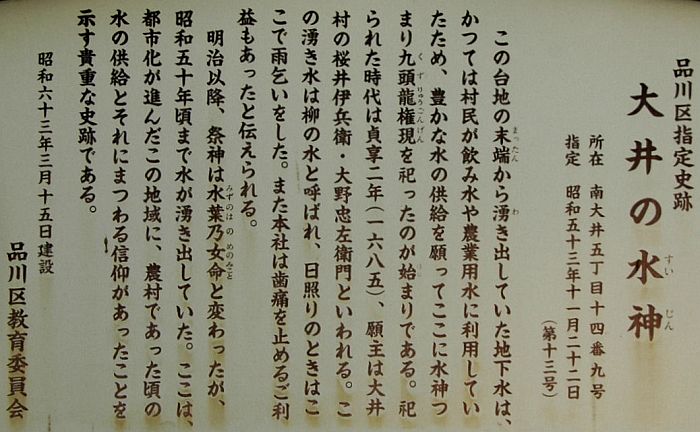 品川区指定史跡
大井の水神
すい じん
所在 南大井五丁目十四番九号
指定 昭和五十三年十一月二十二日
（第十三号）
この台地の末端から湧き出していた地下水は、
まったん わ
かつては村民が飲み水や農業用水に利用してい
たため、豊かな水の供給を願ってここに水神つ
まり九頭龍権現を祀ったのが始まりである。祀
く ず りゅうごんげん
られた時代は貞享二年（一六八五）、願主は大井
村の桜井伊兵衛・大野忠左衛門といわれる。こ
の湧き水は柳の水と呼ばれ、日照りのときはこ
こで雨乞いをした。また本社は歯痛を止めるご利
益もあったと伝えられる。
明治以降、祭神は水葉乃女命と変わったが、
みずのは の めのみこと
昭和五十年頃まで水が湧き出していた。ここは、
都市化が進んだこの地域に、農村であった頃の
水の供給とそれにまつわる信仰があったことを
示す貴重な史跡である。
昭和六十三年三月十五日建設
品川区教育委員会